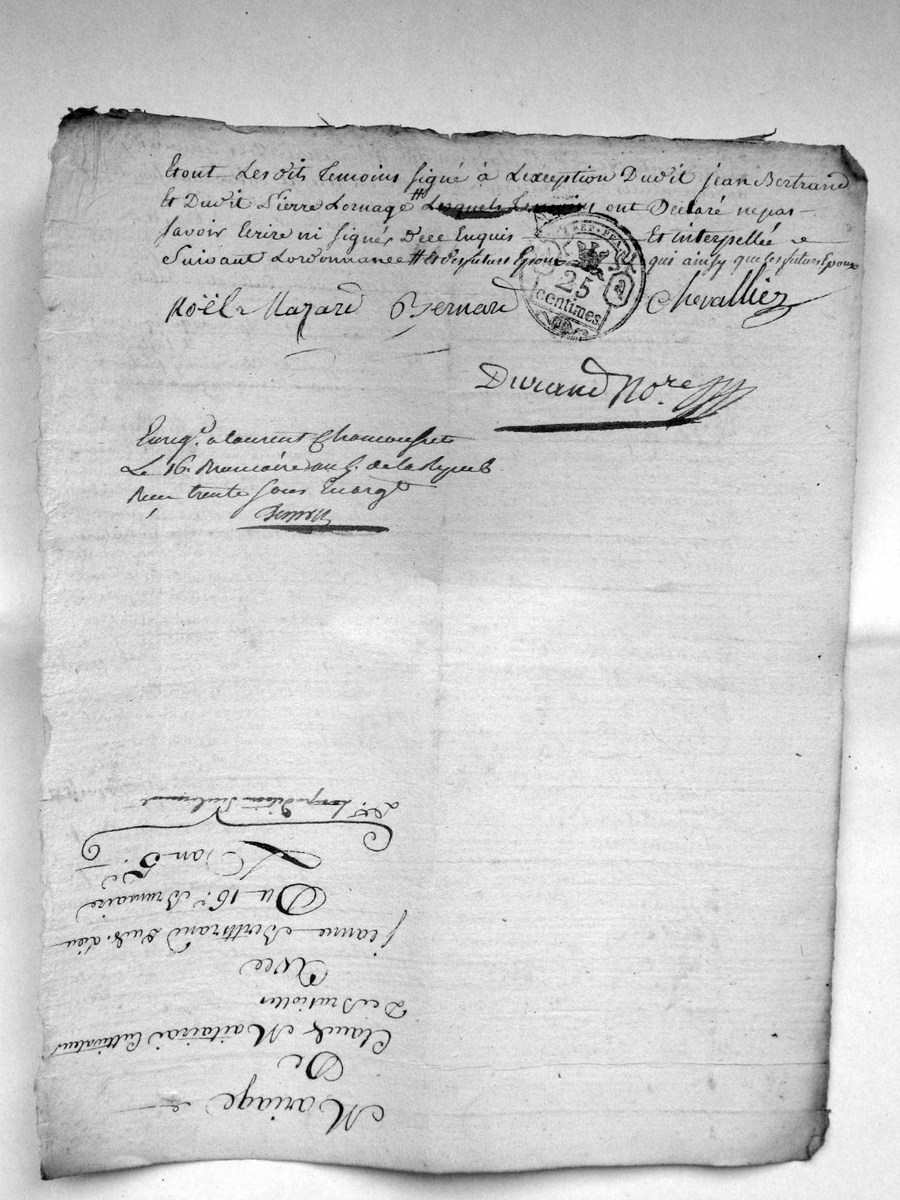 Et ont Les dits temoins signé à Lexception Dudit jean Bertrand
Et Dudit Pierre Lornage # Lesquels ont Déclaré ne pas
savoir Ecrire ni signer De ce Enquis Et interpellé
Suivant Lordonnance # Et Les futurs Epoux qui ainsy que les futurs Epoux
REP. FRA
25
centimes
Noël Mazard Bernard Chevallier
Durand Nore
Enregé. a laurent Chamousset
Le 16. Brumaire an 5. de la Repub
Reçu trente sous En argt
Mariage
De
Claude Maitairai Cultivateur
Des
Avec
jeanne Berttrand
Du 16e. Brumaire
L'an 5e